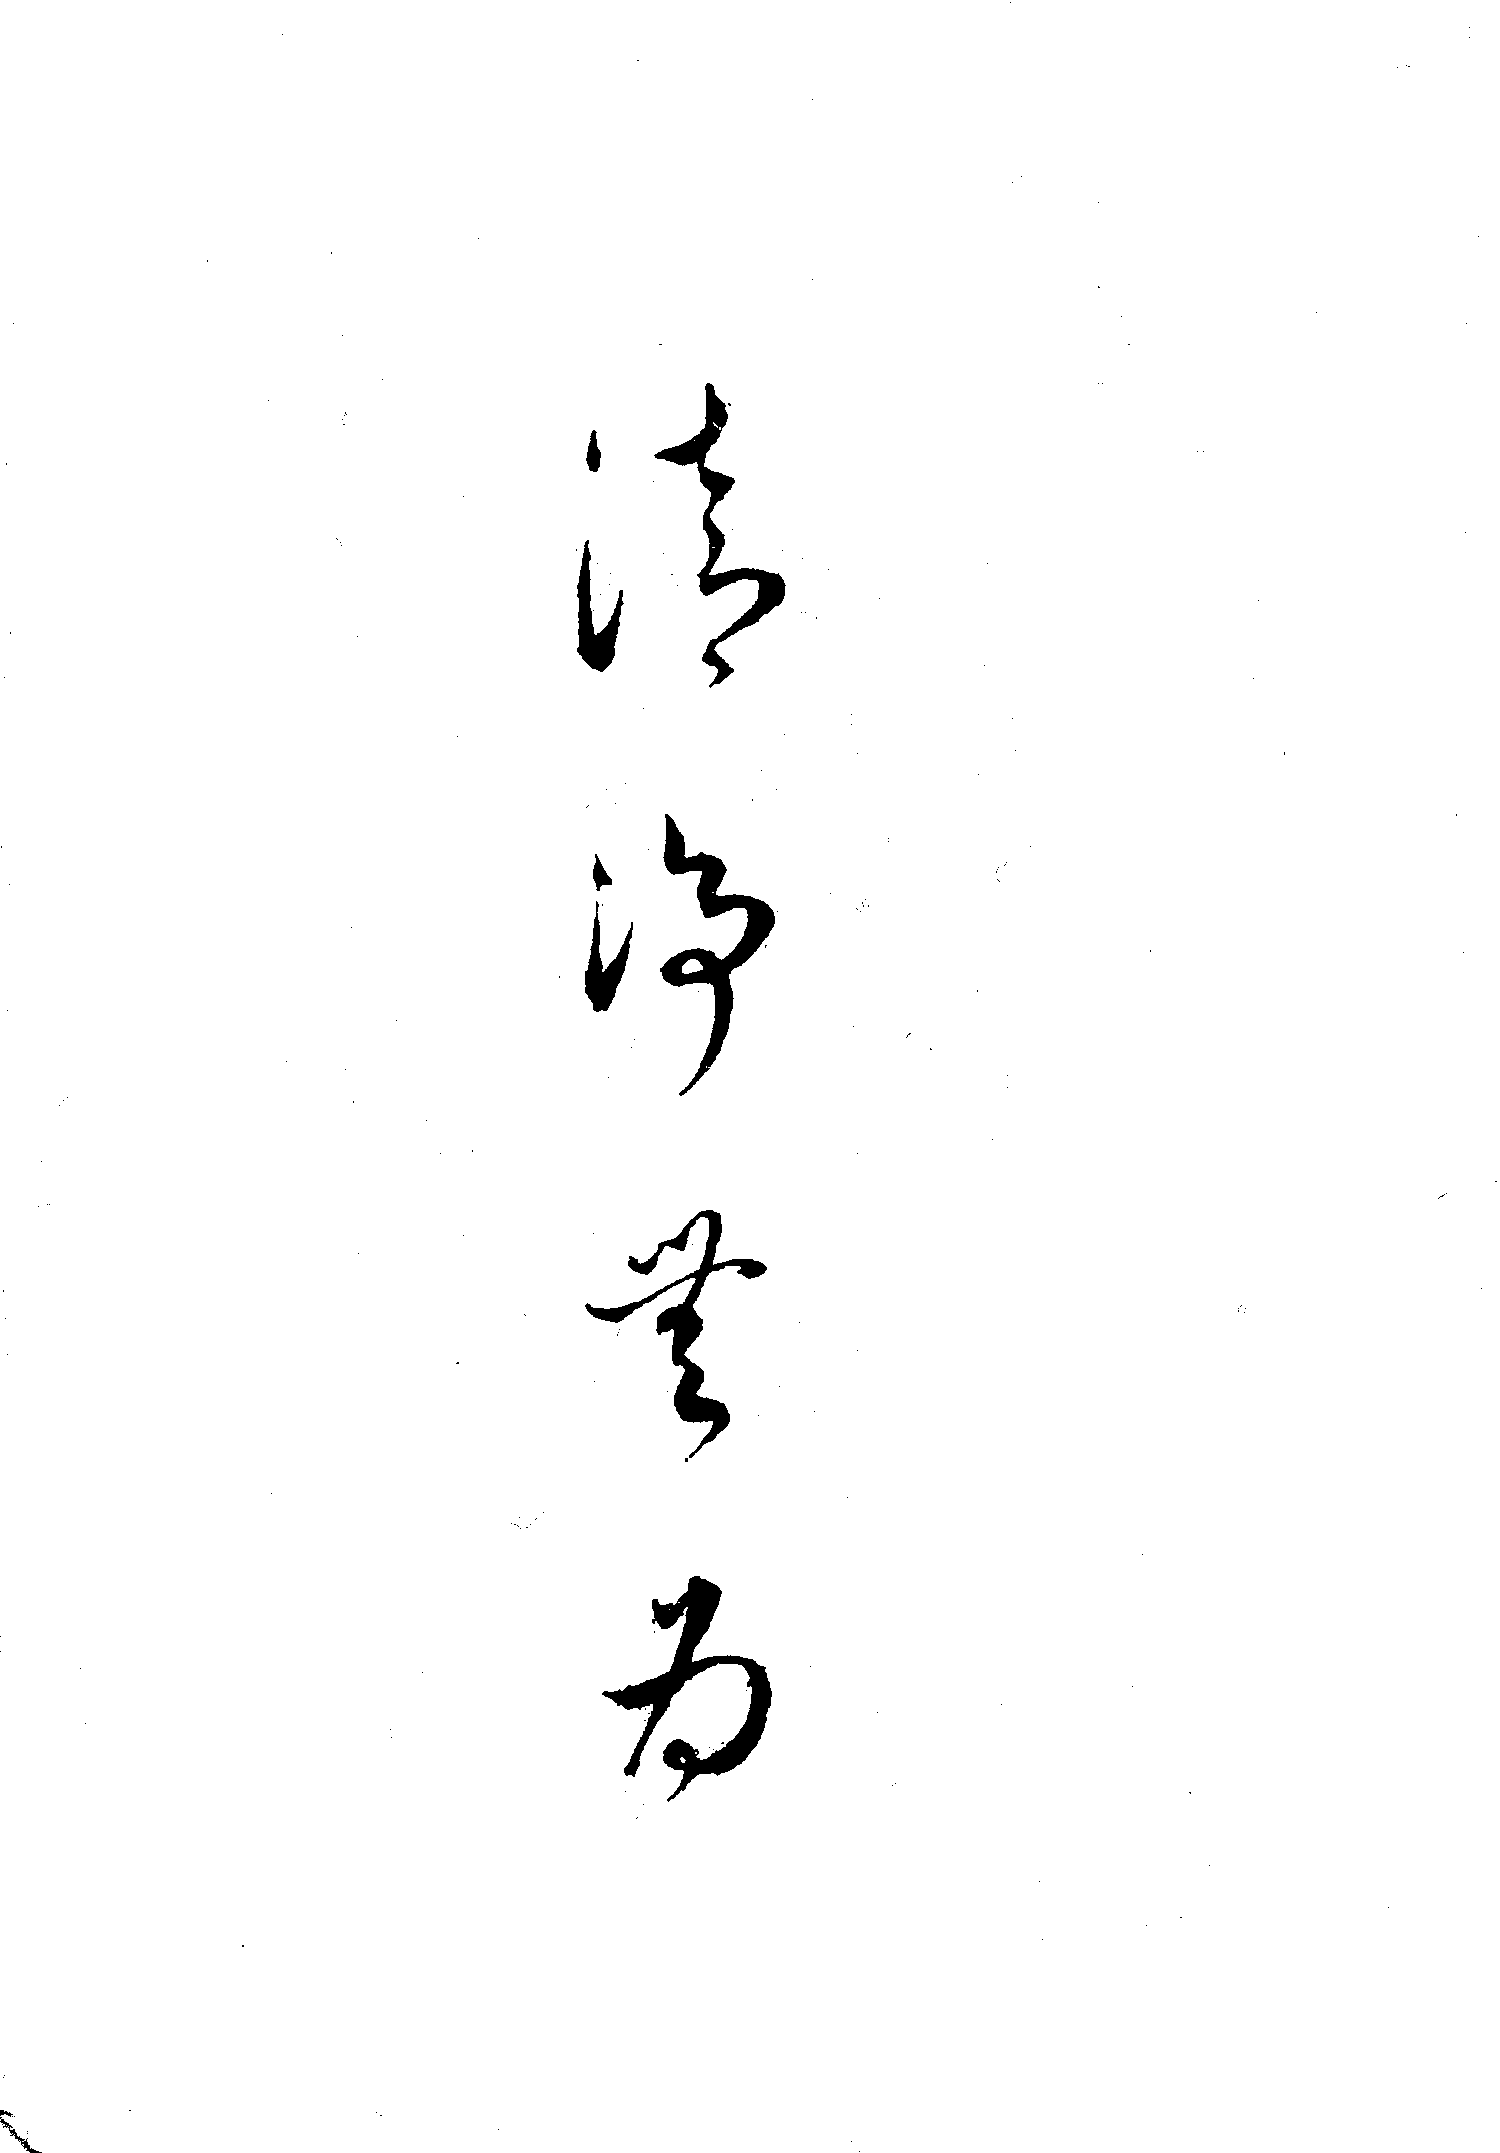 清淨無為